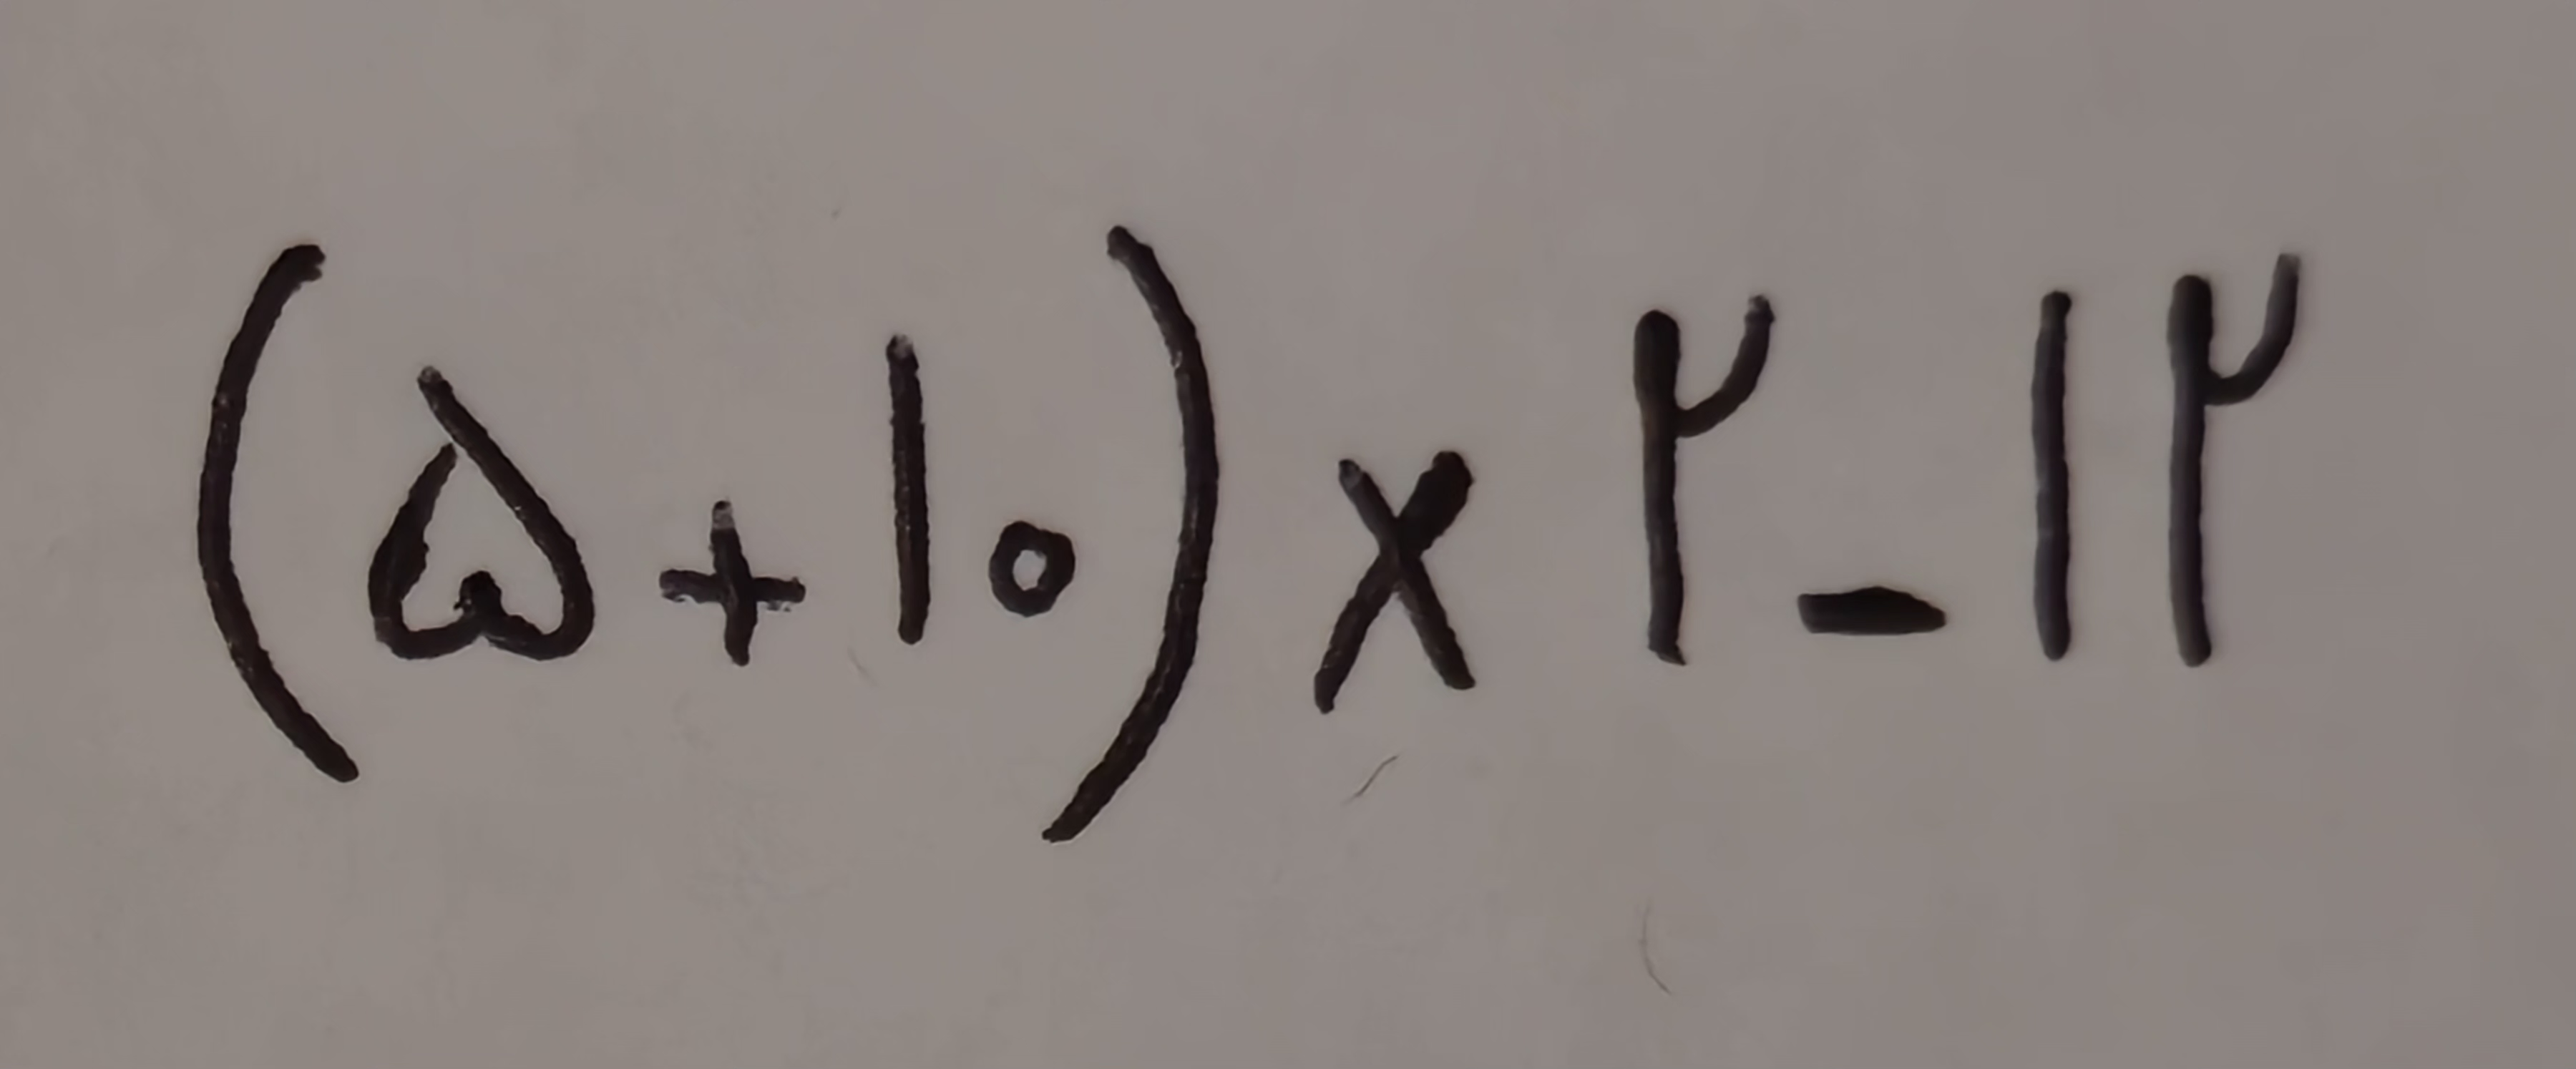 (۵+۱۰)×۲-۱۲